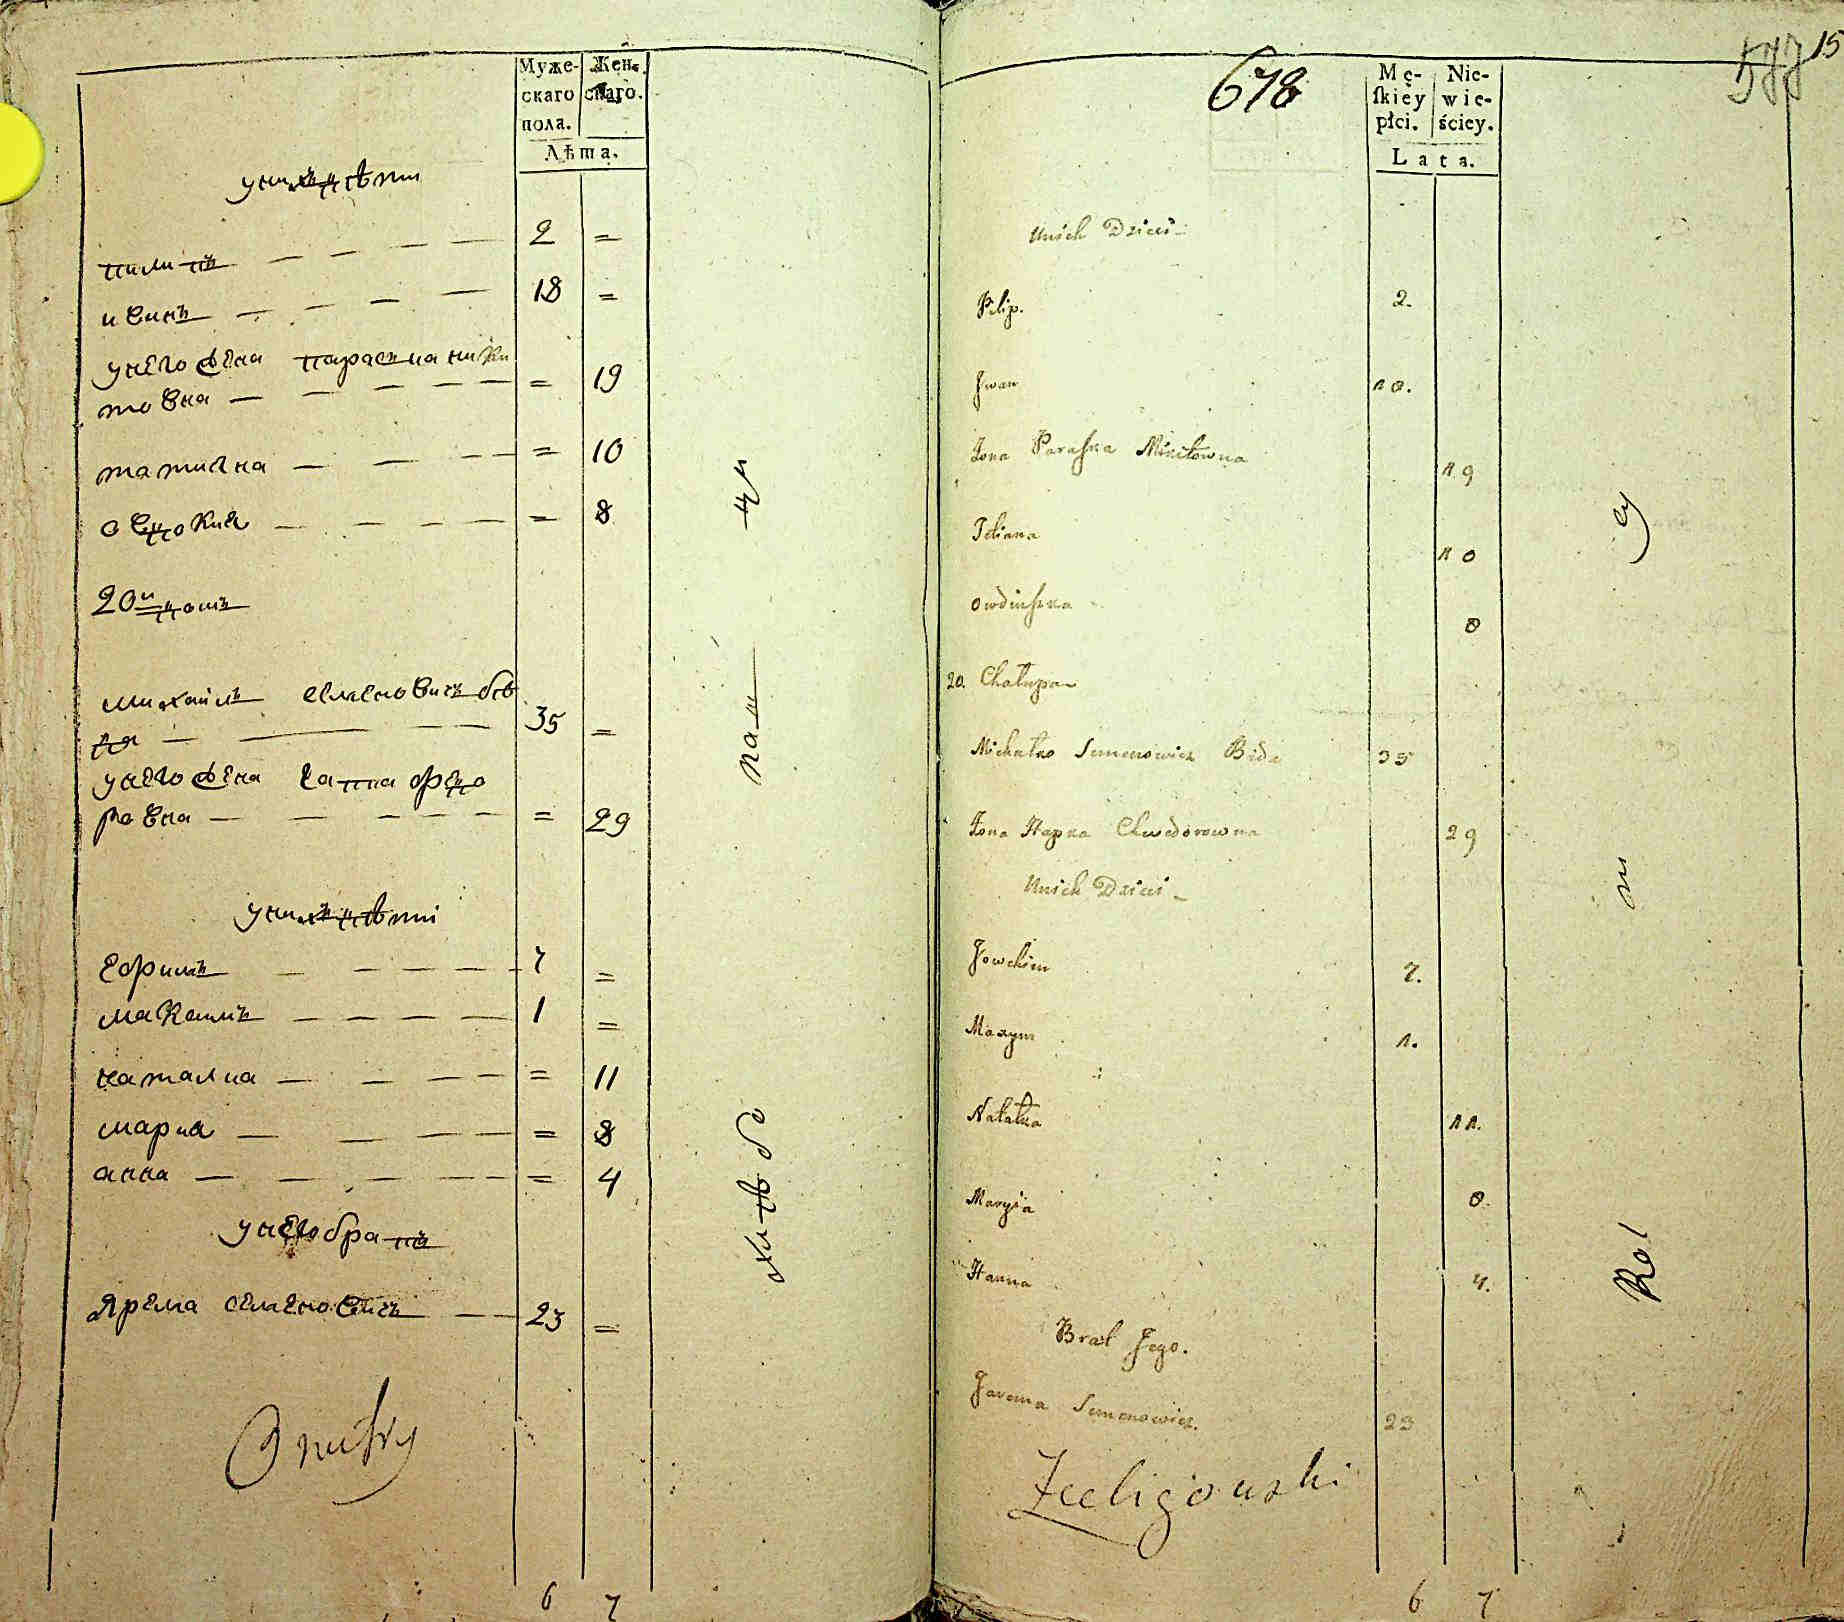 Муже-
скаго
пола.
Жен-
скаго.
Лѣта.
у нихъ дѣти
Пилипъ 2 =
Иванъ 18 =
у него жена Параска Ники
товна = 19
Татияна = 10
Овдокия = 8
20й домъ
Михайлъ Семеновичъ Бѣ
да 35 =
у него жена Гапка Федо
ровна = 29
у нихъ дѣти
Ефимъ 7 =
Максимъ 1 =
Наталка = 11
Мария = 8
Анна = 4
у него братъ
Ярема Семеновичъ 23 =
Onufry
6 7
хлѣбо
паш
цы
678
577 15
Mę-
ſkiéy
płci.
Nie-
wie-
ściey.
Lata.
Unich Dzieci
Pilip. 2.
Jwan 18.
Żona Paraska Mikitowna 19
Tetiana 10
Owdiuszka 8
20. Chałupa
Michałko Semenowicz Bida 35
Żona Hapka Chwedorowna 29
Unich Dzieci
Jowchim 7.
Maxym 1.
Natałka 11.
Marysia 8.
Hanna 4.
Brat Jego.
Jarema Semenowicz. 23
Zeeligowski
6 7
Rol
ni
cy